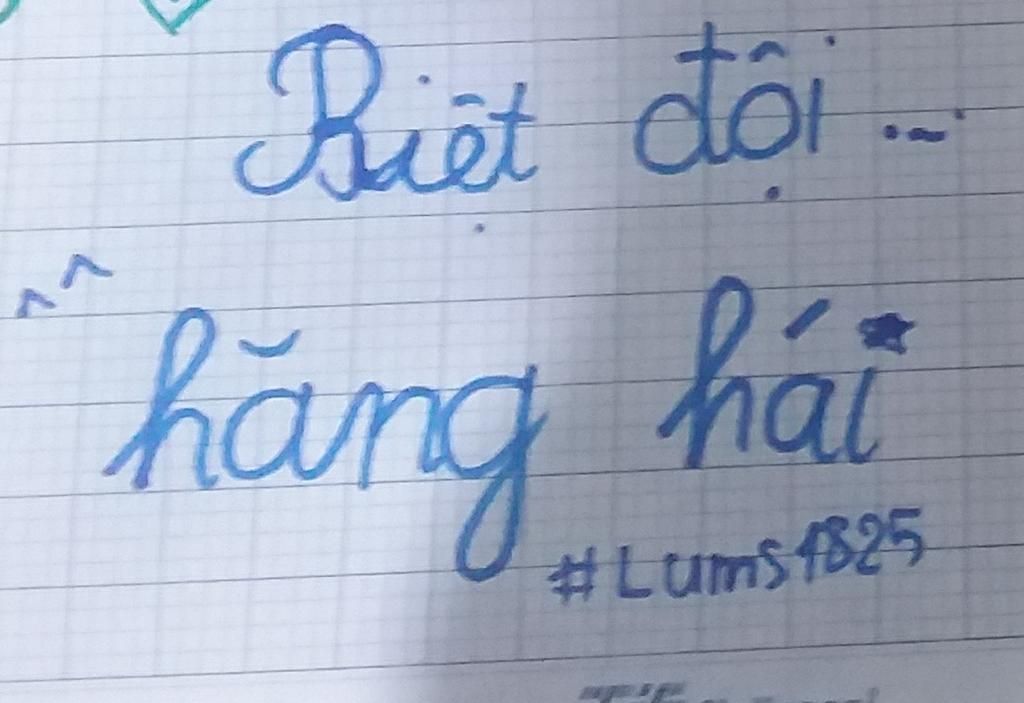 Biệt đội...
hăng hái
#Lums1825